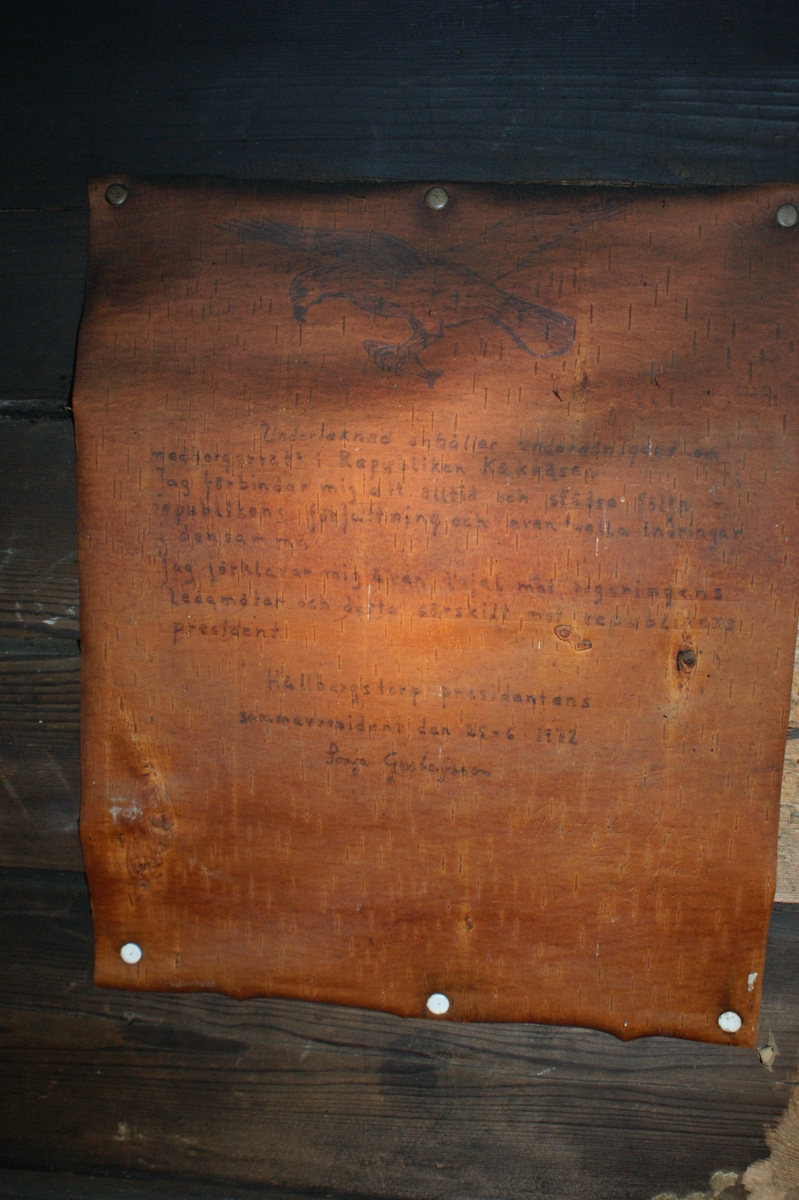 Undertaknad anhåller underdånigast om
medborgarrätt i Republiken Kaknäsen
Jag förbindar mig att alltid och städse följa
republikens författning och även alla ändringar
i densamma.
Jag förklarar mig även lojal mot regeringens
Ledamöter och detta särskilt mot republikens
president
Hällbergstorp presidentens
sommarresident den 25-6 1982
Sonja Gustafsson